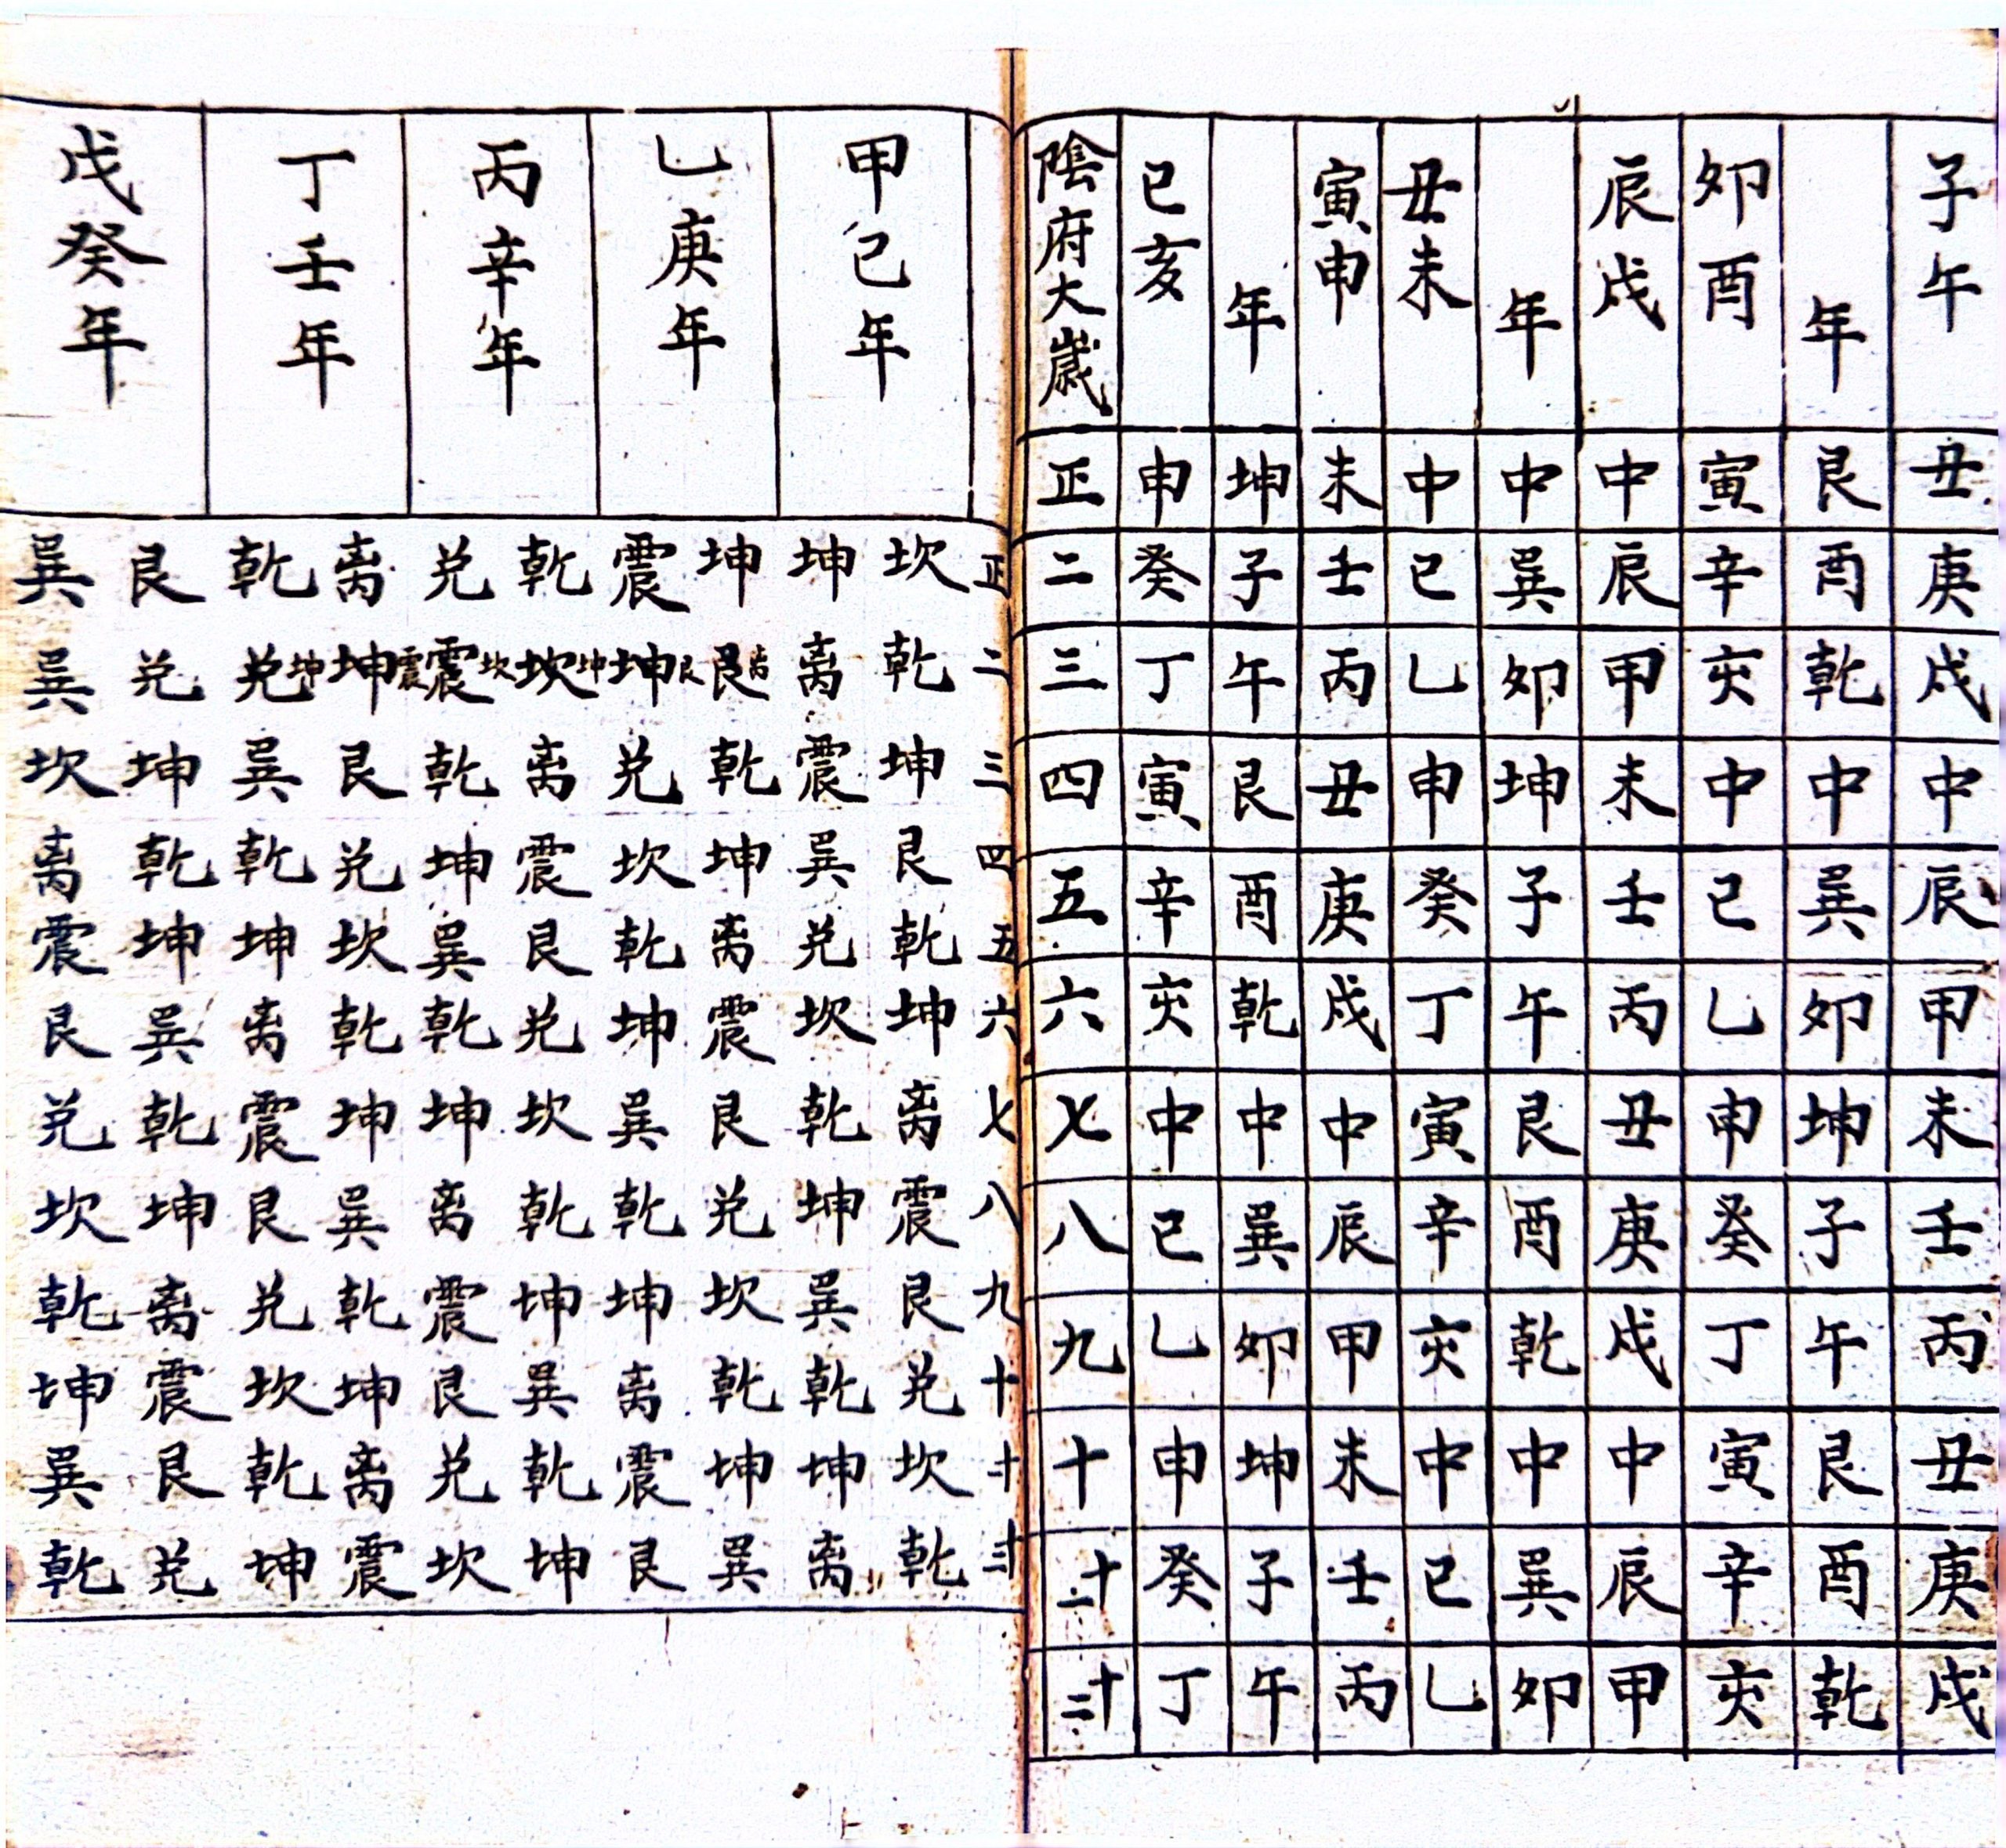 子午丑庚戌中辰甲未壬丙丑庚戌
年艮酉乾中巽夘坤子午艮酉乾
夘酉寅辛亥中巳乙申癸丁寅辛亥
辰戌中辰甲未壬丙丑庚戌中辰甲
年中巽夘坤子午艮酉乾中巽夘
丑未中巳乙申癸丁寅辛亥中巳乙
寅申未壬丙丑庚戌中辰甲未壬丙
年坤子午艮酉乾中巽夘坤子午
巳亥申癸丁寅辛亥中巳乙申癸丁
陰府大歲正二三四五六七八九十十一十二
正二三四五六七八九十十一十二
甲己年
坎乾坤艮乾坤离震艮兑坎乾
坤离震巽兑坎乾坤巽乾坤离
乙庚年
坤艮离乾坤离震艮兑坎乾坤巽
震坤艮兑坎乾坤巽乾坤离震艮
丙辛年
乾坎坤离震艮兑坎乾坤巽乾坤
兑震坎乾坤巽乾坤离震艮兑坎
丁壬年
离坤震艮兑坎乾坤巽乾坤离震
乾兑坤巽乾坤离震艮兑坎乾坤
戊癸年
艮兑坤乾坤巽乾坤离震艮兑
巽巽坎离震艮兑坎乾坤巽乾